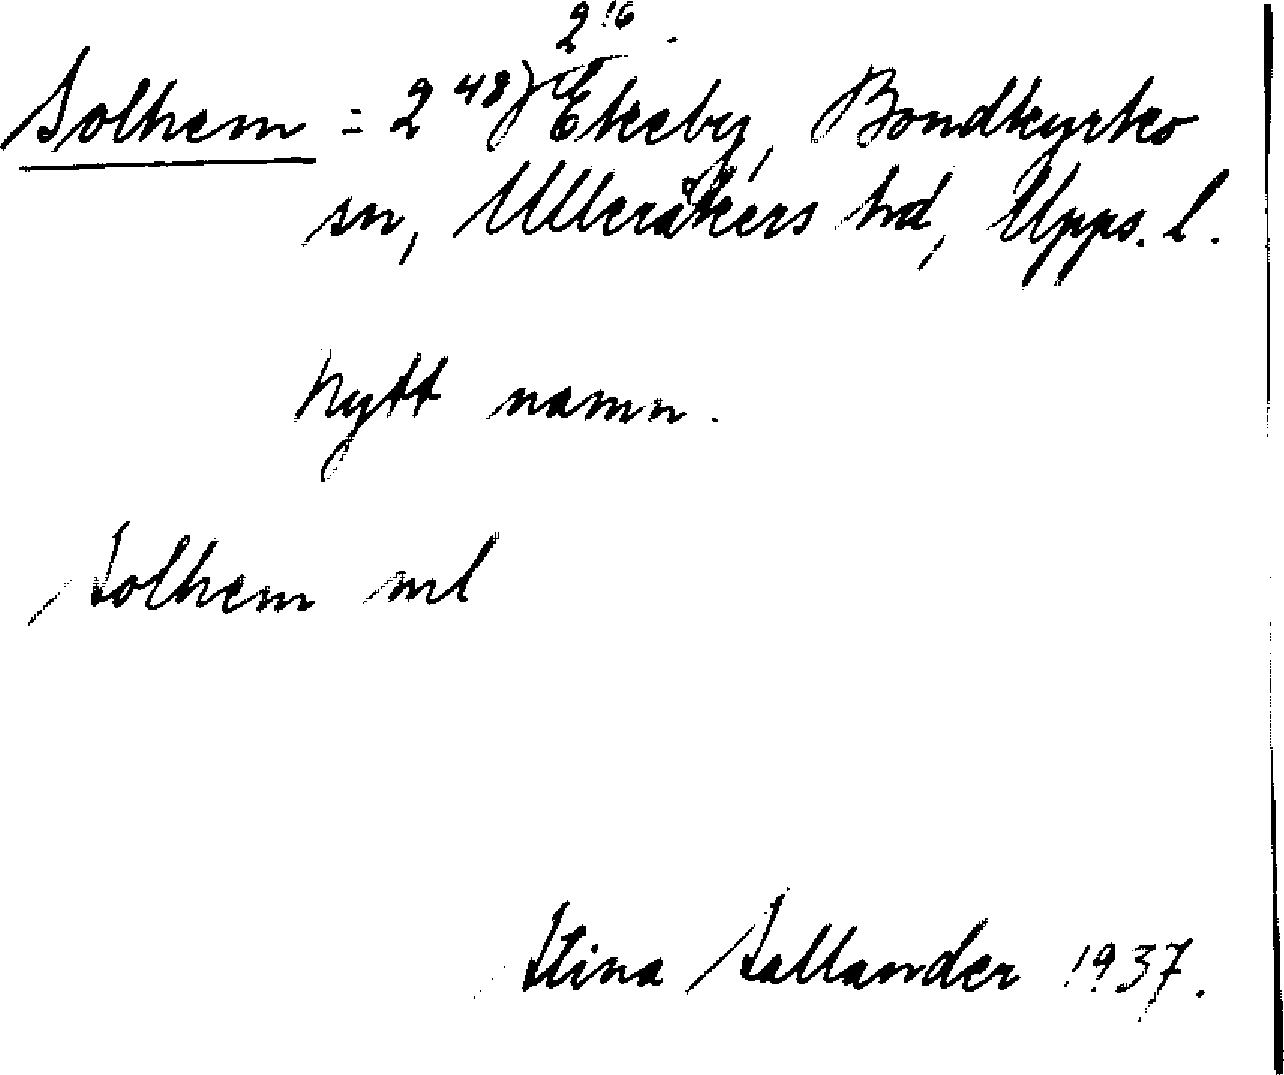 2¹⁶.
Solhem = 2⁴⁸) Ekeby, Bondkyrko
sn, Ulleråkers hd, Upps. l.
Nytt namn.
Solhem ml
Stina Sallander 1937.